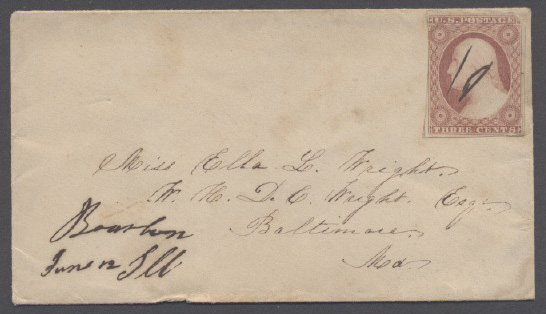 U.S. POSTAGE
THREE CENTS
Miss Ella L. Wright.
W. H. D. C. Wright. Esq.
Baltimore
Md.
Bourbon
June 12 Ill